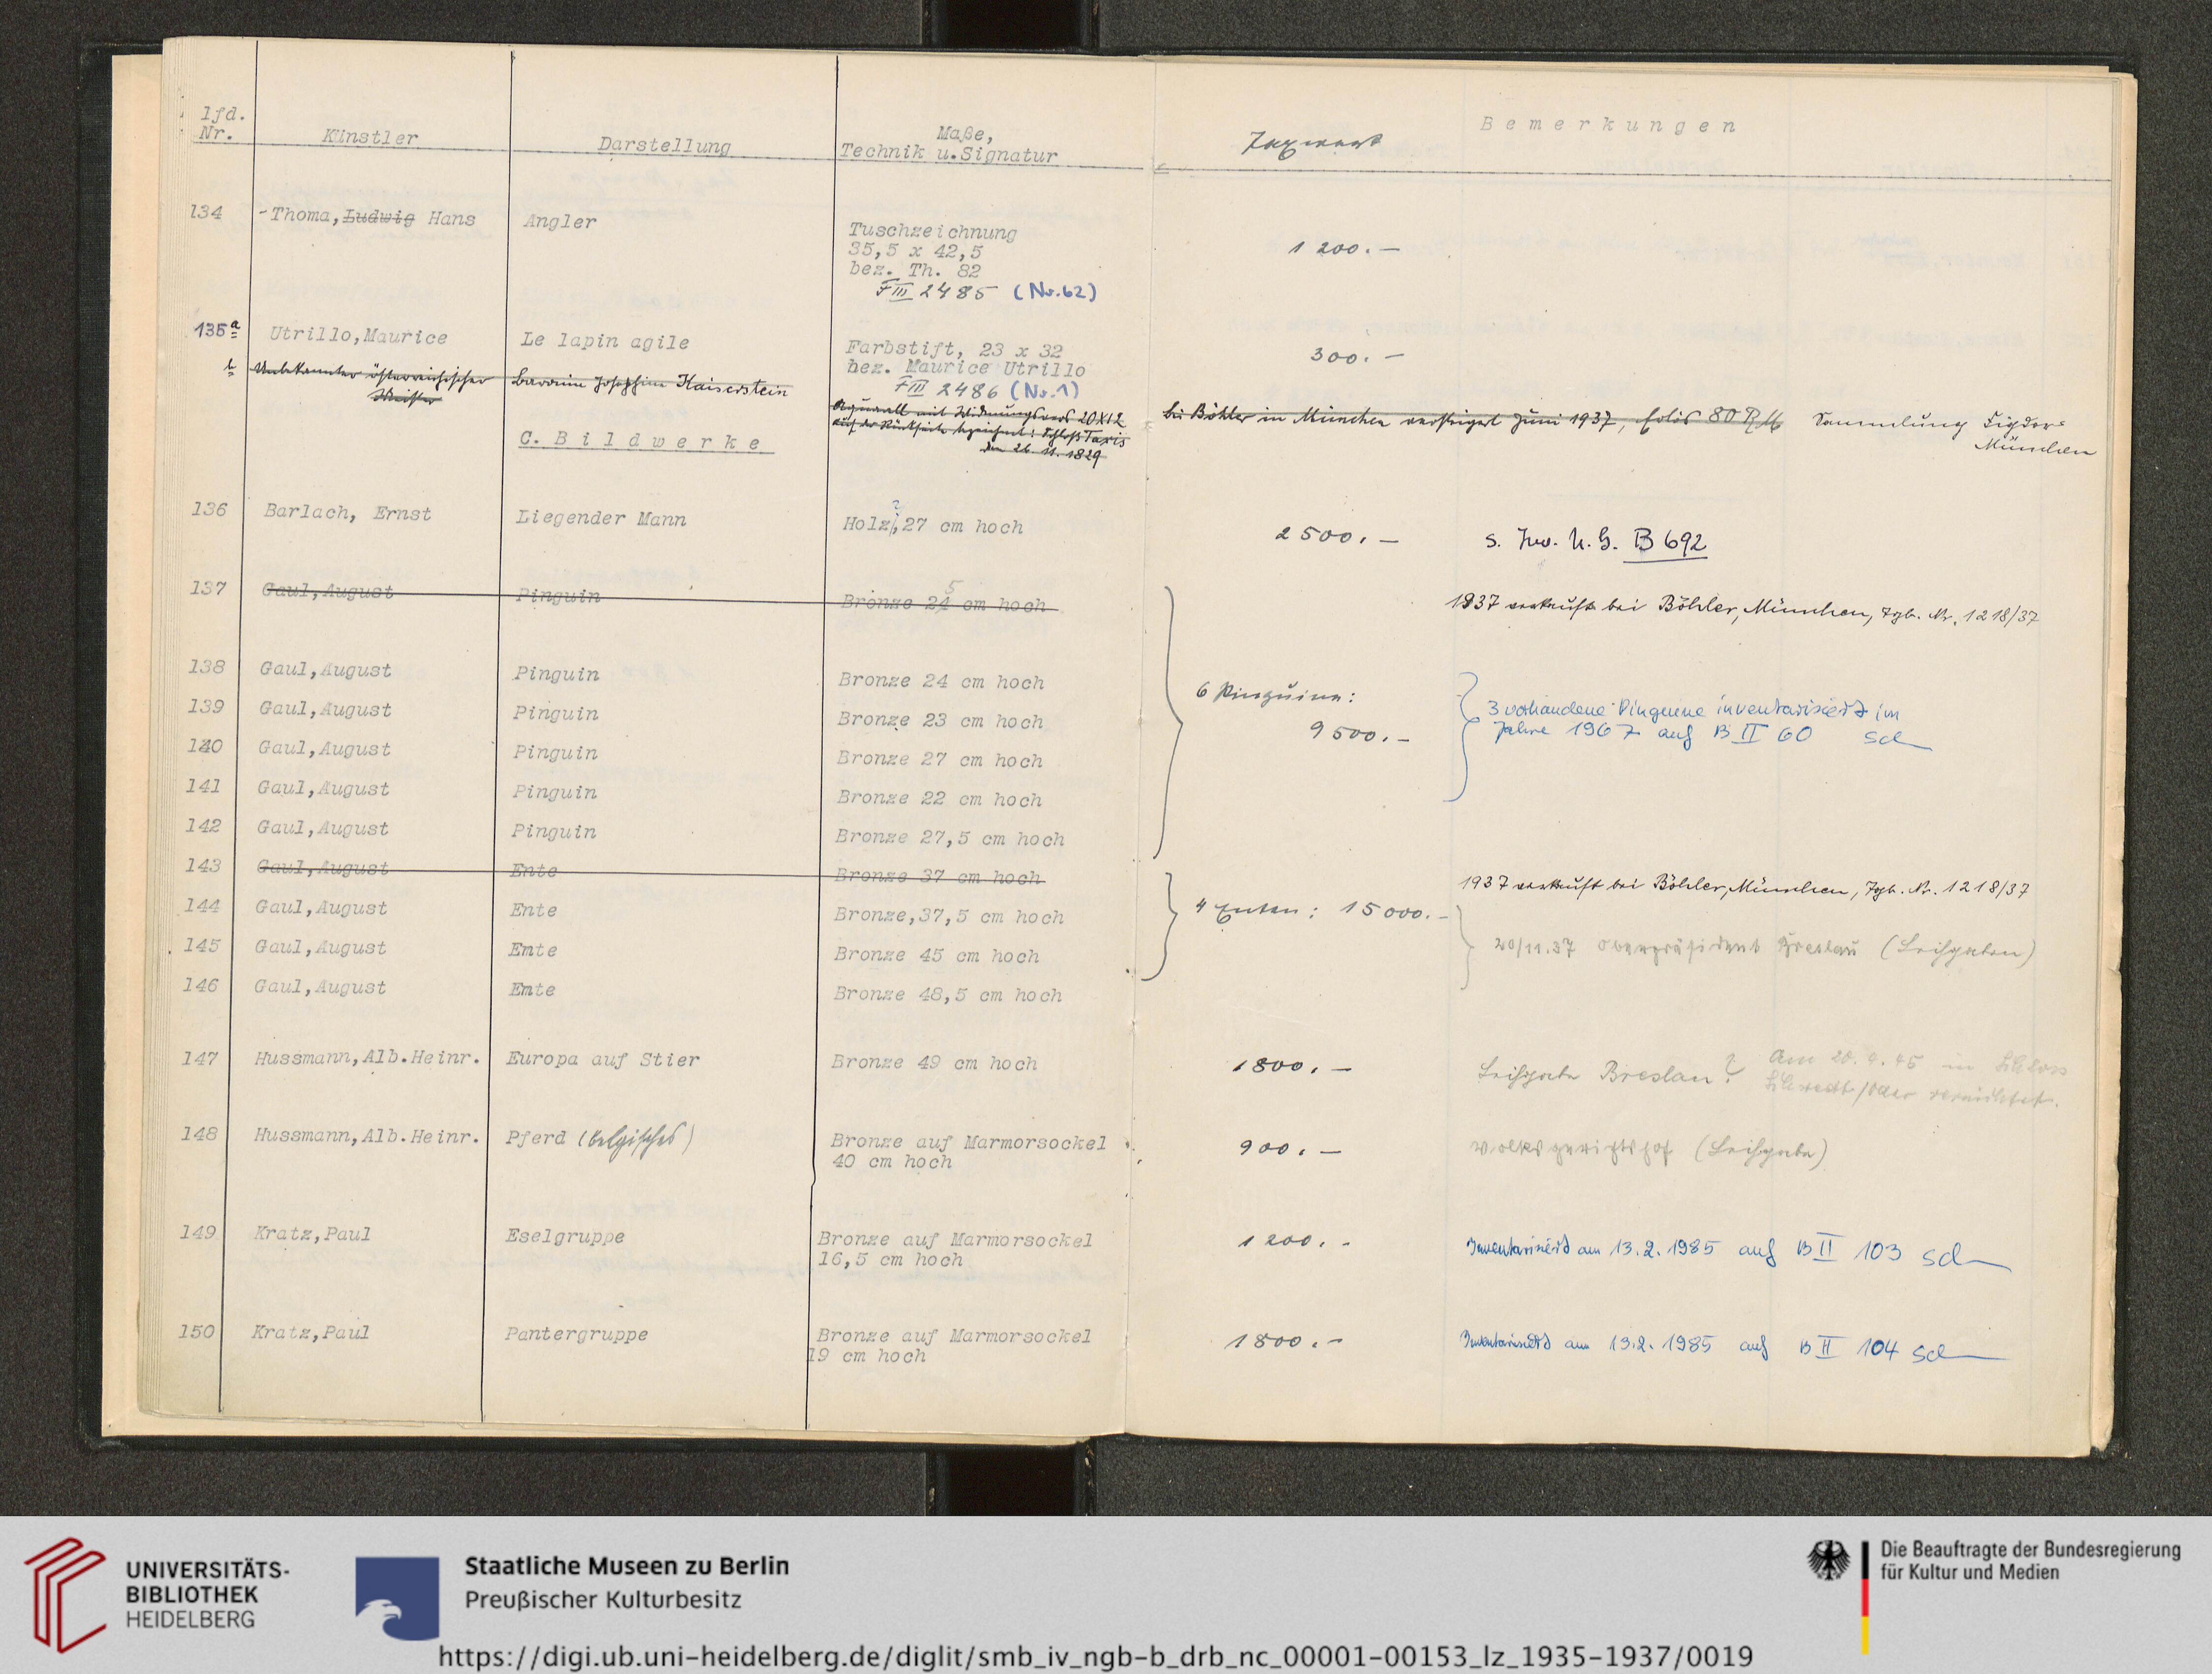 lfd.
Nr. Künstler Darstellung Maße,
Technik u.Signatur Taxwert Bemerkungen
134 -Thoma, Ludwig Hans Angler Tuschzeichnung 1 200.—
35,5 x 42,5
bez. Th. 82
F III 2485 (Nr.62)
135 a Utrillo,Maurice Le lapin agile Farbstift, 23 x 32 300.—
bez. Maurice Utrillo
F III 2486 (Nr.1)
b Unbekannter österreichischer Meister Baronin Josephine Kaiserstein Aquarell mit Widmungsvers 20x12 bei Böhler in München versteigert Juni 1937, Erlös 80 RM Sammlung Figdor-
München
auf der Rückseite bezeichnet: Schloß Taxis
den 26. 11. 1829
C. Bildwerke
136 Barlach, Ernst Liegender Mann Holz?,27 cm hoch 2 500.— s. Inv. N.G. B 692
137 Gaul,August Pinguin Bronze 24 5 cm hoch 1937 verkauft bei Böhler, München, Tgb. Nr. 1218/37
138 Gaul,August Pinguin Bronze 24 cm hoch
139 Gaul,August Pinguin Bronze 23 cm hoch 6 Pinguine: 3 vorhandene Pinguine inventarisiert im
140 Gaul,August Pinguin Bronze 27 cm hoch 9 500.— Jahre 1967 auf B II 60 Sch
141 Gaul,August Pinguin Bronze 22 cm hoch
142 Gaul,August Pinguin Bronze 27,5 cm hoch
143 Gaul,August Ente Bronze 37 cm hoch 1937 verkauft bei Böhler, München, Tgb. Nr. 1218/37
144 Gaul,August Ente Bronze,37,5 cm hoch 4 Enten: 15 000.—
145 Gaul,August Ente Bronze 45 cm hoch 20/11.37 Oberpräsident Breslau (Leihgaben)
146 Gaul,August Ente Bronze 48,5 cm hoch
147 Hussmann,Alb.Heinr. Europa auf Stier Bronze 49 cm hoch 1 800.— Leihgabe Breslau? Am 20. 4. 45 in Schloss
Schwedt/Oder vernichtet.
148 Hussmann,Alb.Heinr. Pferd (belgisches) Bronze auf Marmorsockel 900.— Volksgerichtshof (Leihgabe)
40 cm hoch
149 Kratz,Paul Eselgruppe Bronze auf Marmorsockel 1 200.- Inventarisiert am 13.2.1985 auf B II 103 Sch
16,5 cm hoch
150 Kratz,Paul Pantergruppe Bronze auf Marmorsockel 1 800.- Inventarisiert am 13.2.1985 auf B II 104 Sch
19 cm hoch
UNIVERSITÄTS-
BIBLIOTHEK
HEIDELBERG
Staatliche Museen zu Berlin
Preußischer Kulturbesitz
Die Beauftragte der Bundesregierung
für Kultur und Medien
https://digi.ub.uni-heidelberg.de/diglit/smb_iv_ngb-b_drb_nc_00001-00153_lz_1935-1937/0019